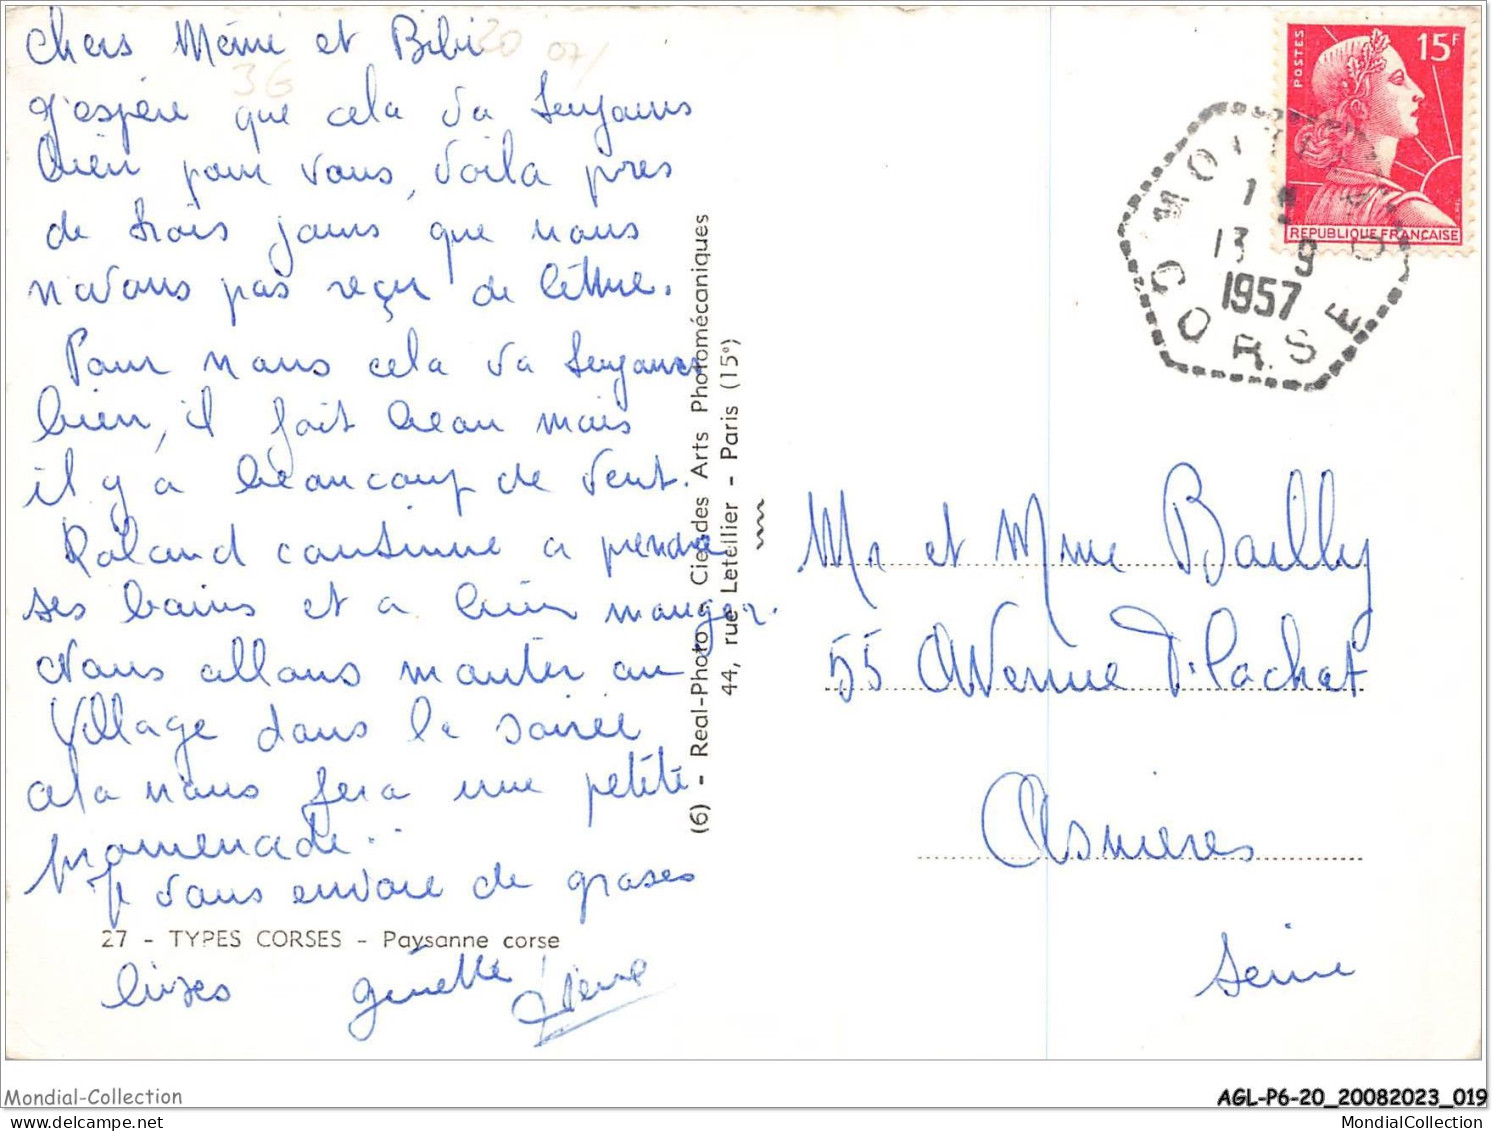 Chers Mémé et Bibi
J'espère que cela va toujours
bien pour vous, voila pres
de trois jours que nous
n'avons pas reçu de lettre.
Pour nous cela va toujours
bien, il fait beau mais
il y a beaucoup de vent.
Roland continue a prendre
ses bains et a bien manger.
Nous allons monter au
Village dans la soirée
cela nous fera une petite
promenade..
Je vous envoie de grosses
bises Ginette Pierre
27 - TYPES CORSES - Paysanne corse
(6) - Real-Photo Cie des Arts Photomécaniques
44, rue Letellier - Paris (15°)
POSTES
15F
REPUBLIQUE FRANÇAISE
13 9
1957
CORSE
Mr et Mme Bailly
55 Avenue Pachat
Asnieres
Seine
36
20
07/
Mondial-Collection
AGL-P6-20_20082023_019
MondialCollection